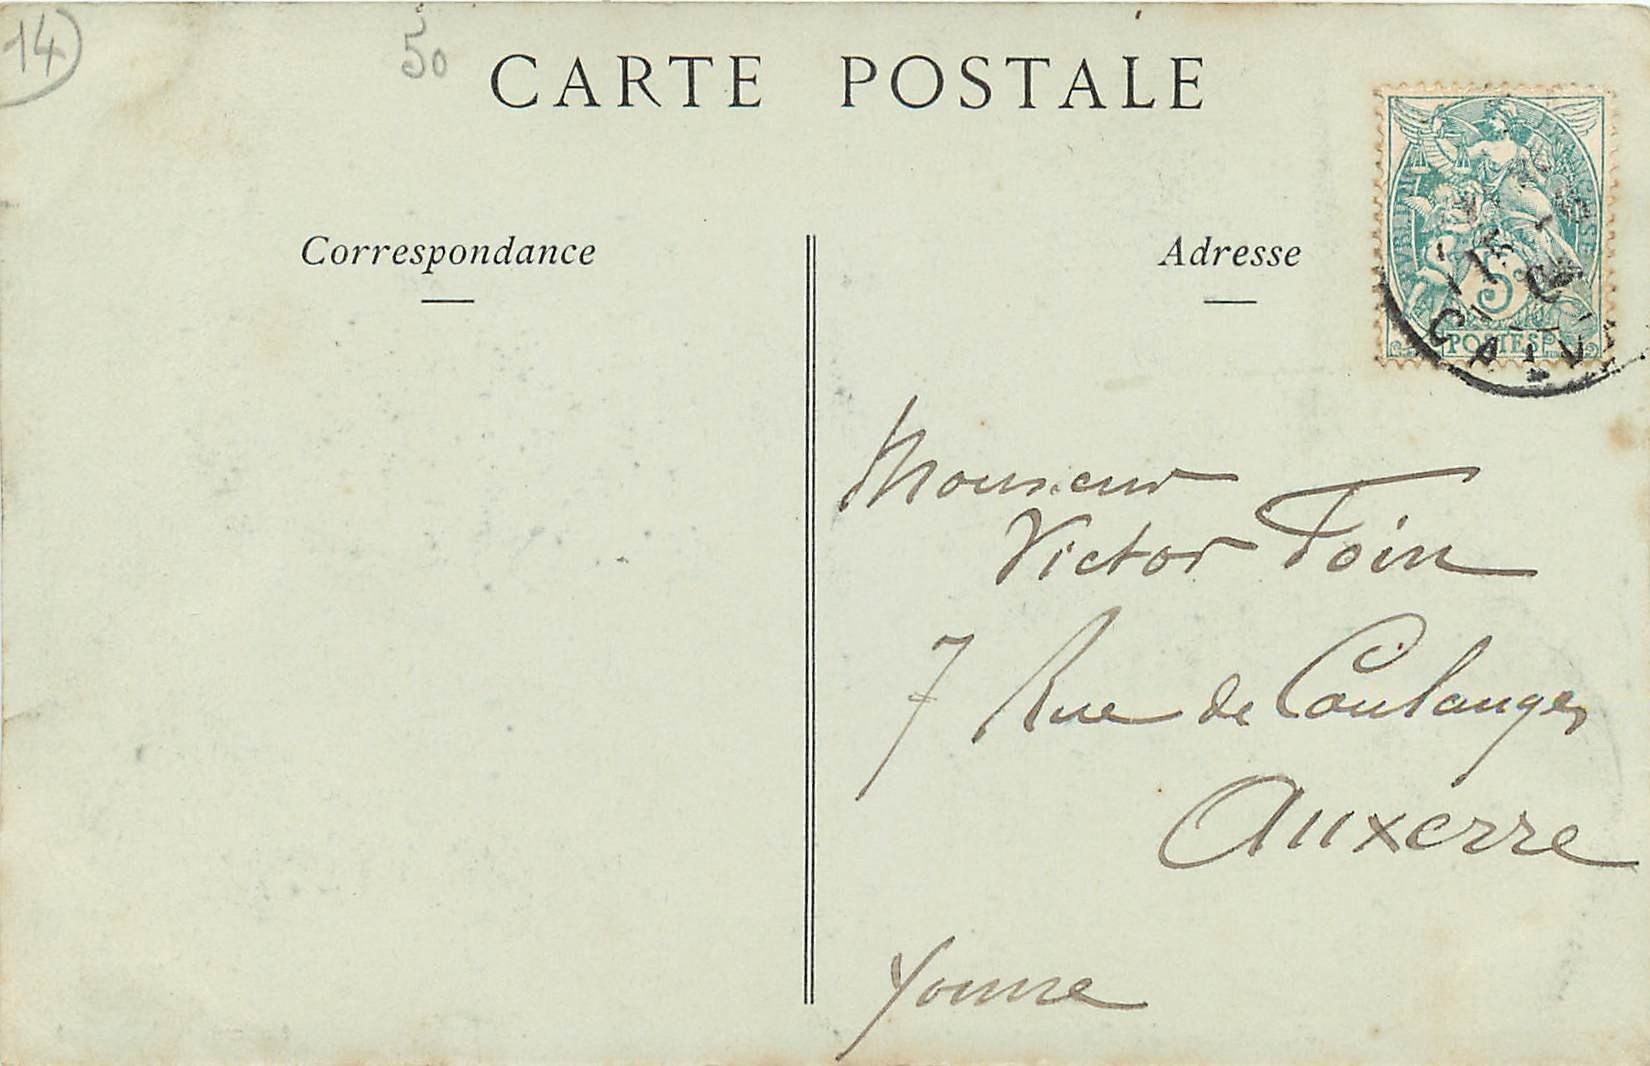 14
50
CARTE POSTALE
Correspondance
Adresse
5c
POSTES
CALVA
Monsieur
Victor Foin
7 Rue de Coulanges
Auxerre
Yonne